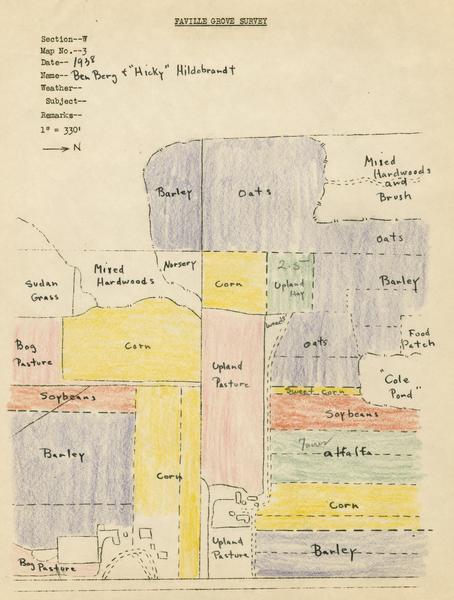 FAVILLE GROVE SURVEY
Section--W
Map No.--3
Date-- 1938
Name-- Ben Berg & "Hicky" Hildebrandt
Weather--
Subject--
Remarks--
1" = 330'
N
Mixed
Hardwoods
and
Brush
Barley
Oats
Oats
Mixed
Hardwoods
Norsery
2.5
Sudan
Grass
Corn
Upland
Hay
Barley
weeds
Bog
Pasture
Corn
Oats
Food
Patch
Upland
Pasture
"Cole
Pond"
Sweet Corn
Soybeans
Soybeans
alfalfa
Barley
Corn
Corn
Upland
Pasture
Barley
Bog Pasture